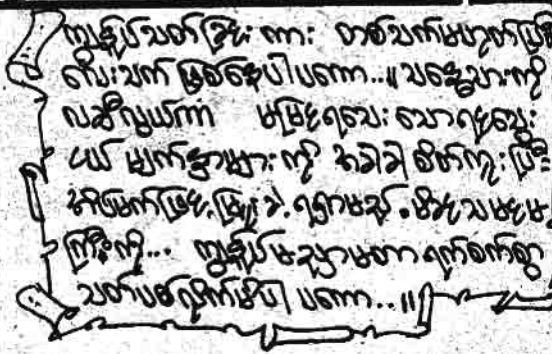 ကျွန်ုပ်သတ်ခြင်းကား တစ်သက်မဟုတ်ပြီ
လေးသက် ဖြစ်နေပါပကော..။ သန္ဓေသားကို
လည်လွယ်ကာ မမြင်ရသေးသောရင်သွေး
ငယ် မျက်နှာများကို အခါခါ စိတ်ကူးပြီး
အိပ်မက်ဖြင့် မြူးခဲ့ရရှာမည့် မိခင်သမငမ
ကြီးကို... ကျွန်ုပ်မညှာမတာ ရက်စက်စွာ
သတ်ပစ်လိုက်မိပါ ပကော..။